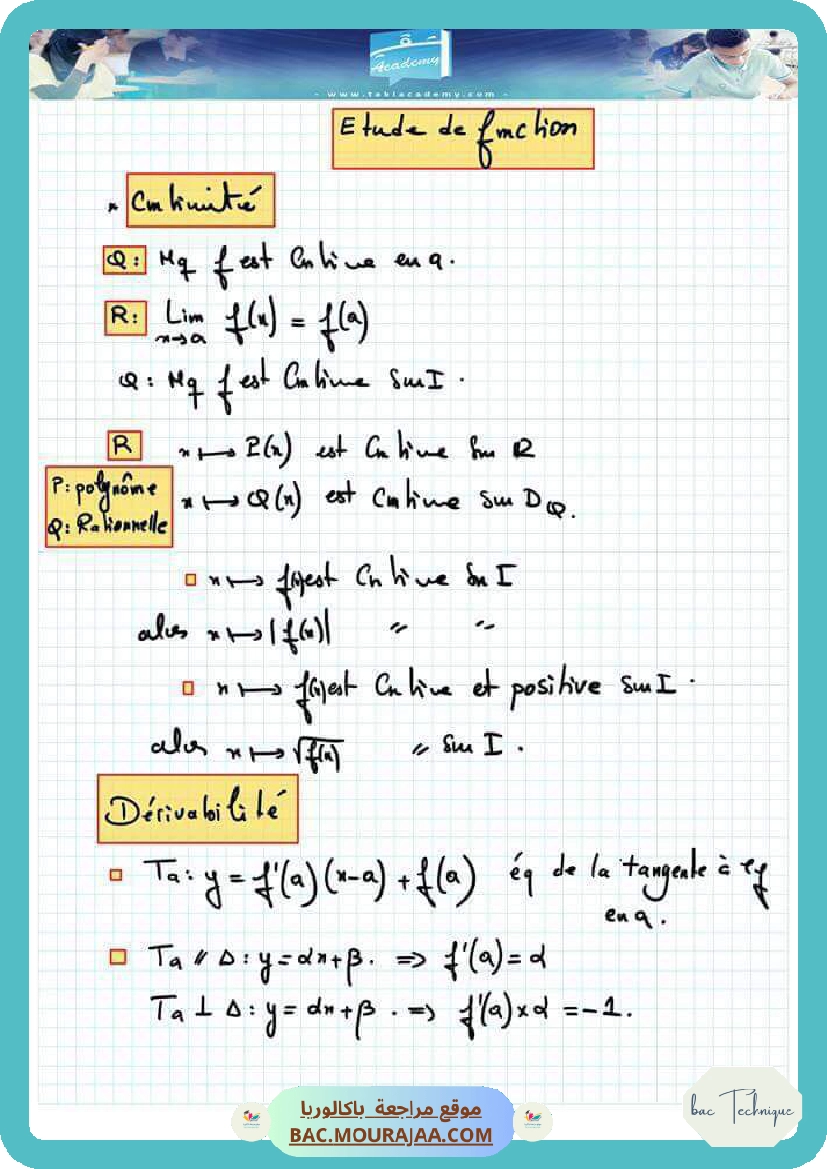 Academy
- www.takiacademy.com -
Etude de fonction
* Continuité
Q: Mq f est Continue en a.
R: Lim f(x) = f(a)
x→a
Q: Mq f est Continue sur I.
R x ↦ P(x) est Continue sur ℝ
P: polynôme
Q: Rationnelle
x ↦ Q(x) est Continue sur D_Q.
▫ x ↦ f(x) est Continue sur I
alors x ↦ |f(x)| " "
▫ x ↦ f(x) est Continue et positive sur I.
alors x ↦ √f(x) " sur I.
Dérivabilité
▫ Ta: y = f'(a)(x-a) + f(a) éq de la tangente à ζf
en a.
▫ Ta // Δ: y = αx+β. ⇒ f'(a) = α
Ta ⊥ Δ: y = αx+β. ⇒ f'(a)×α = -1.
موقع مراجعة باكالوريا
BAC.MOURAJAA.COM
bac Technique